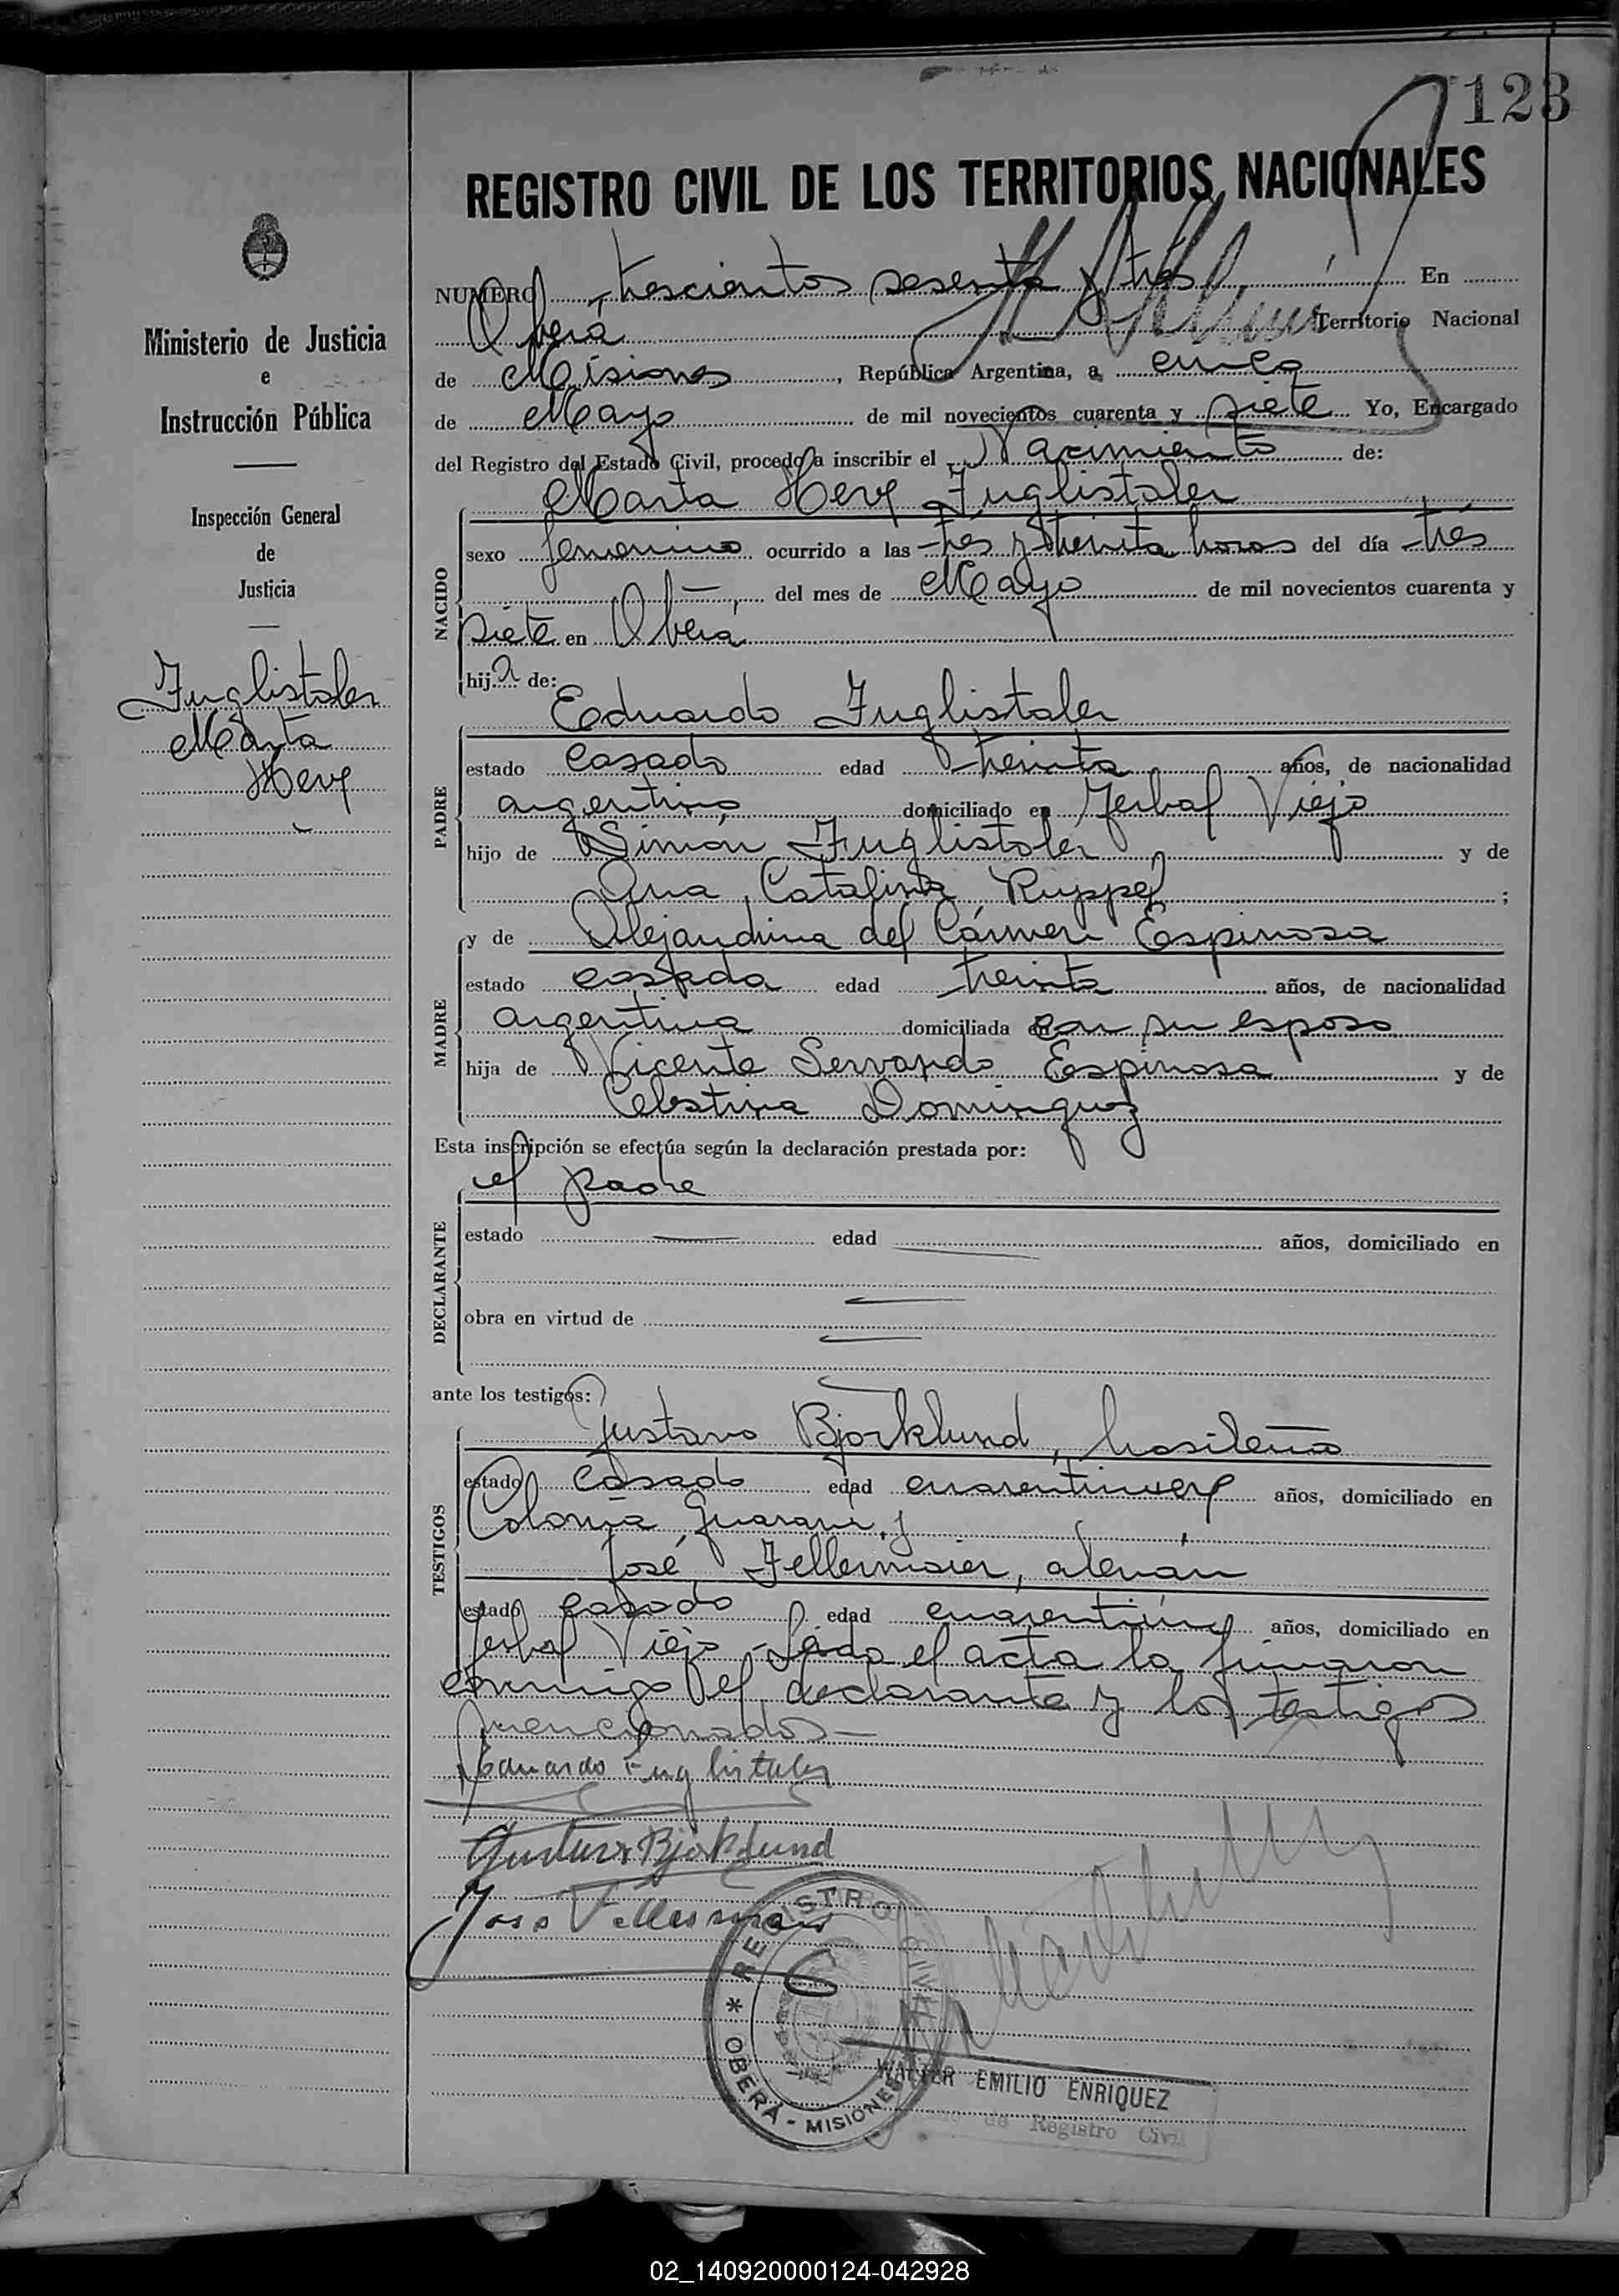 123
REGISTRO CIVIL DE LOS TERRITORIOS NACIONALES
Ministerio de Justicia
e
Instrucción Pública
Inspección General
de
Justicia
Fuglistaler
Marta
Heve
NUMERO trescientos sesenta y tres En
Oberá Territorio Nacional
de Misiones, República Argentina, a cinco
de Mayo de mil novecientos cuarenta y siete Yo, Encargado
del Registro del Estado Civil, procedo a inscribir el Nacimiento de:
Marta Heve Fuglistaler
NACIDO
sexo femenino ocurrido a las tres y treinta horas del día trés
del mes de Mayo de mil novecientos cuarenta y
siete en Oberá
hija de:
Eduardo Fuglistaler
PADRE
estado casado edad treinta años, de nacionalidad
argentino domiciliado en Yerbal Viejo
hijo de Simón Fuglistaler y de
Ana Catalina Ruppel ;
y de Alejandrina del Cármen Espinosa
MADRE
estado casada edad treinta años, de nacionalidad
argentina domiciliada con su esposo
hija de Vicente Servando Espinosa y de
Celestina Dominguez
Esta inscripción se efectúa según la declaración prestada por:
el padre
DECLARANTE
estado edad años, domiciliado en
obra en virtud de
ante los testigos:
Gustavo Bjorklund, brasileño
TESTIGOS
estado casado edad años, domiciliado en
Colonia Guaraní, y
José Fellermaier, alemán
estado casado edad años, domiciliado en
Yerbal Viejo. Leída el acta la firmaron
conmigo el declarante y los testigos
mencionados
Eduardo Fuglistaler
Gustavo Bjorklund
Jose Fellermaier
REGISTRO CIVIL
* OBERÁ - MISIONES
WALTER EMILIO ENRIQUEZ
de Registro Civil
02_140920000124-042928